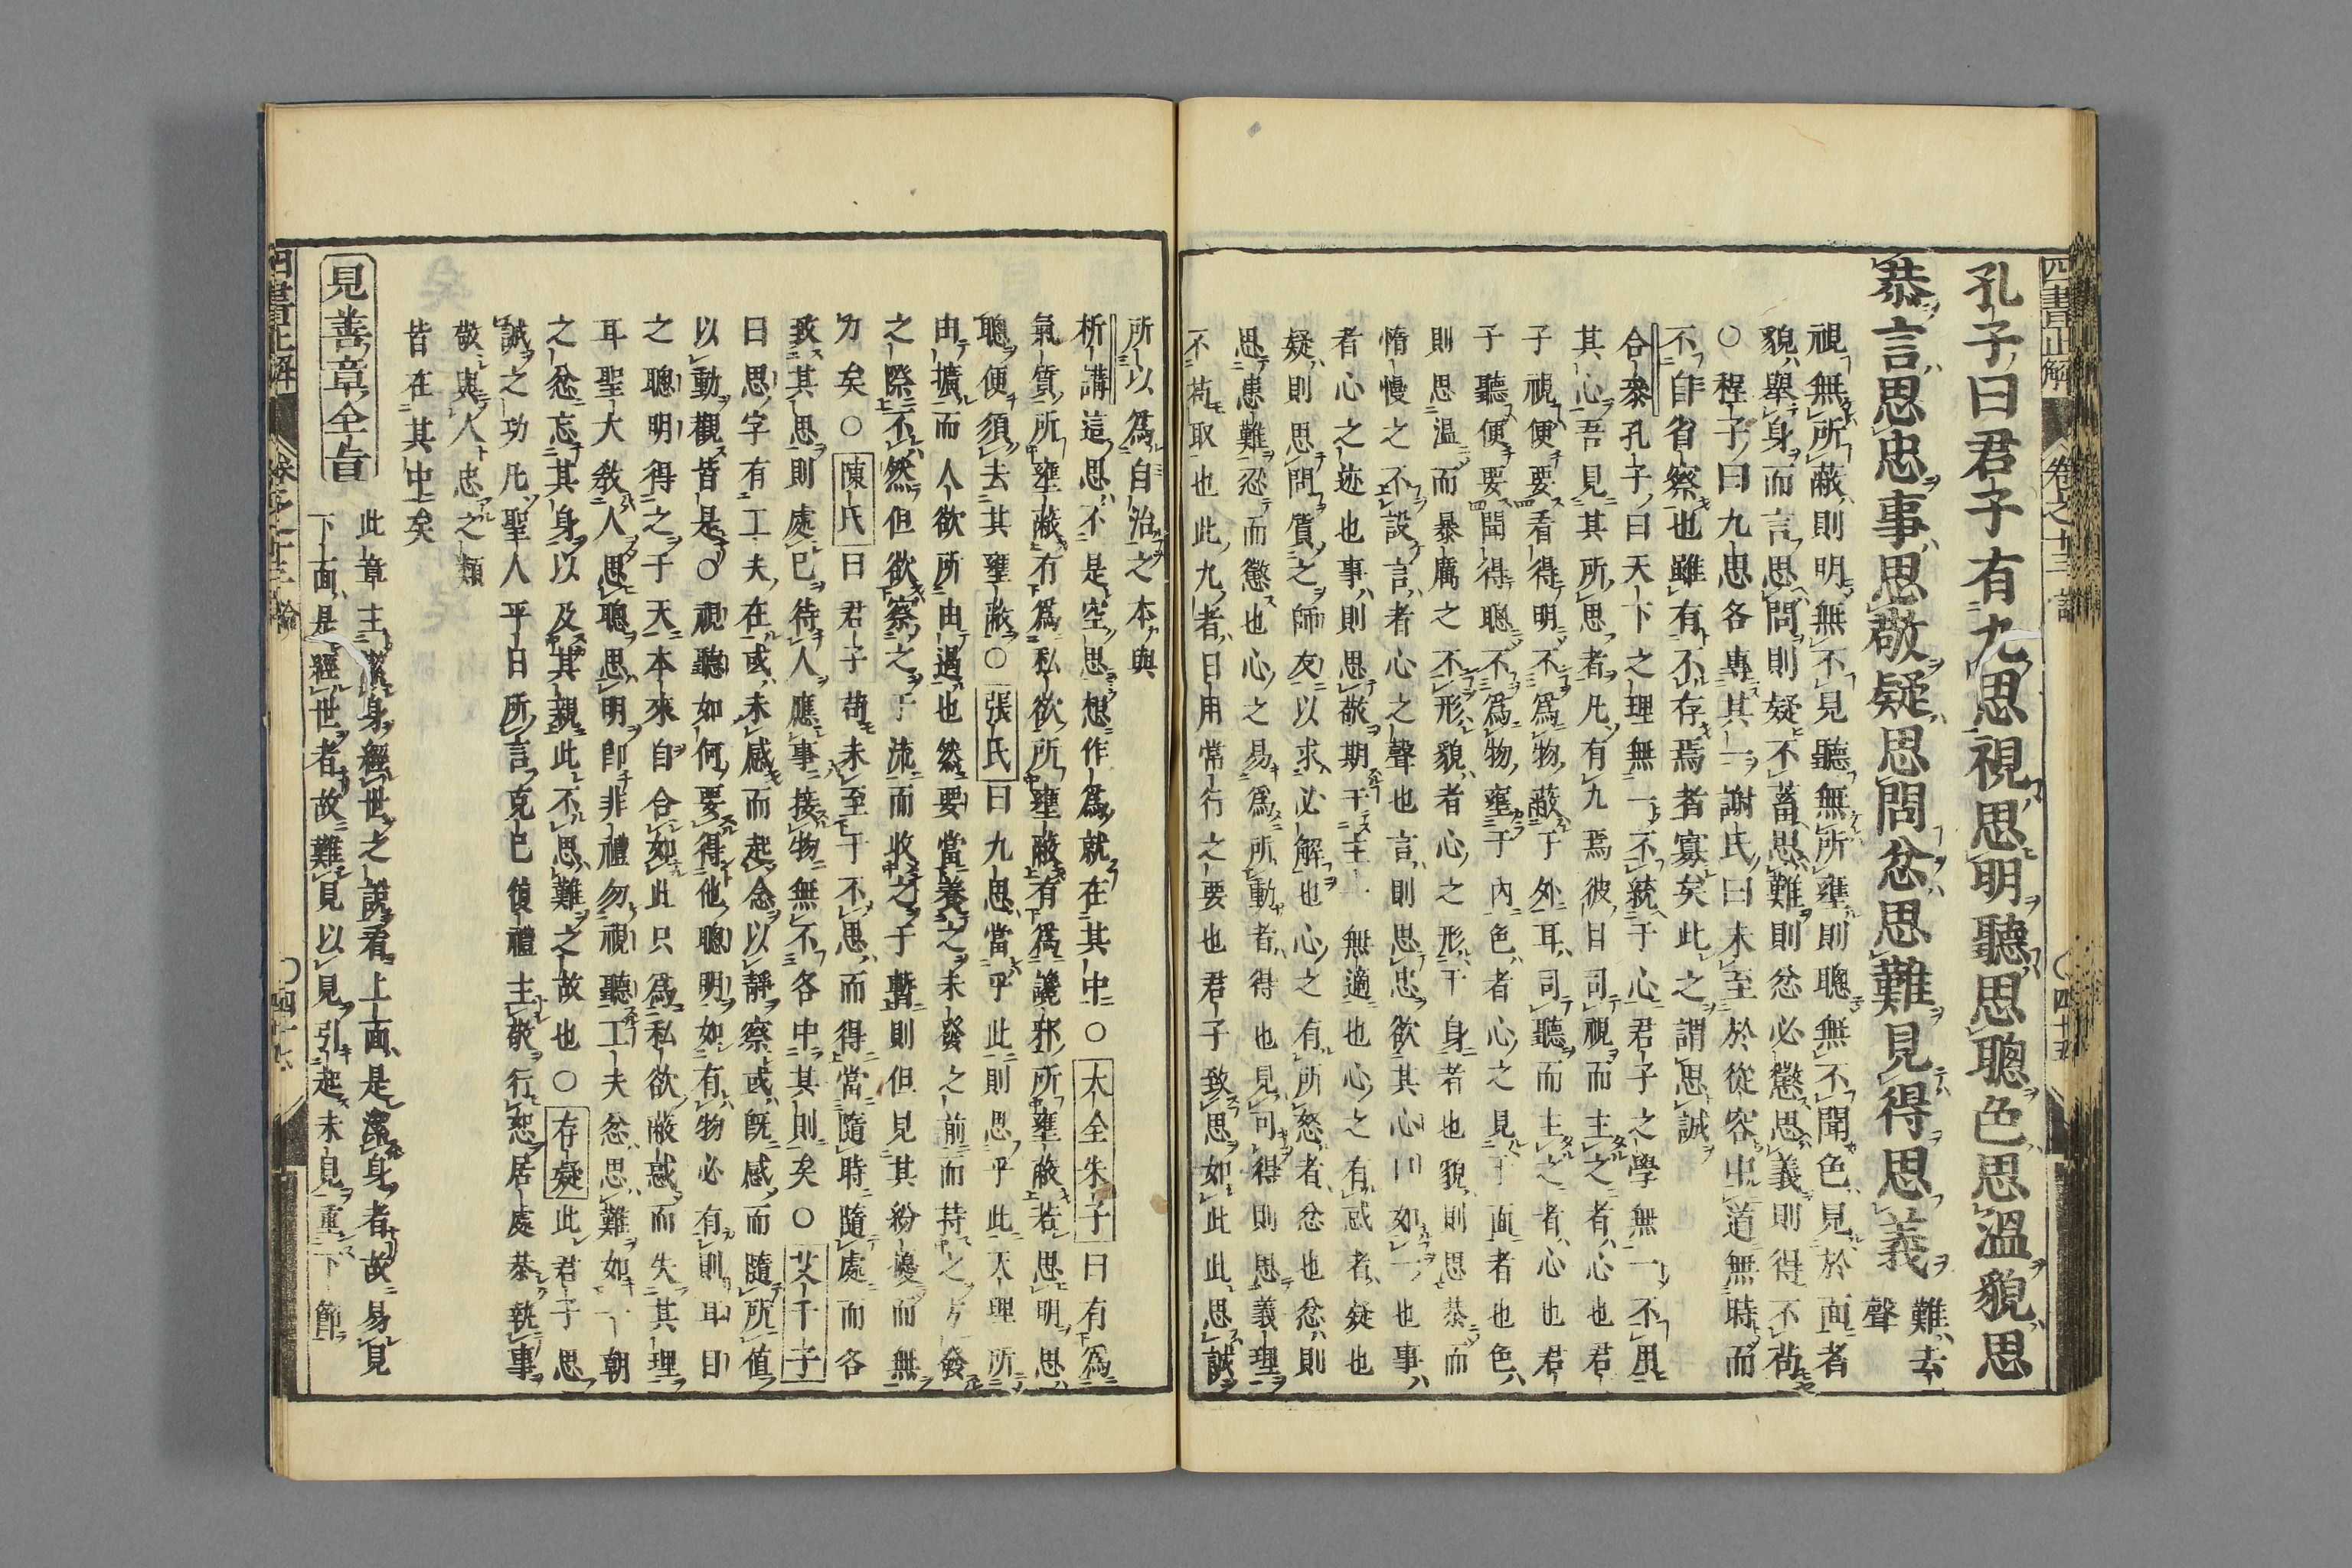 孔子曰君子有九思視思明聽思聰色思溫貌思
恭言思忠事思敬疑思問忿思難見得思義
難去
聲
視無所蔽則明無不見聽無所壅則聰無不聞色見於面者
貌舉身而言思問則疑不蓄思難則忿必懲思義則得不苟
○程子曰九思各專其一謝氏曰未至於從容中道無時而
不自省察也雖有不存焉者寡矣此之謂思誠
合參孔子曰天下之理無一不統于心君子之學無一不用
其心吾見其所思者凡有九焉彼目司視而主之者心也君
子視便要看得明不為物蔽于外耳司聽而主之者心也君
子聽便要聞得聰不為物壅于內色者心之見于面者也色
則思溫而暴厲之不形貌者心之形于身者也貌則思恭而
惰慢之不設言者心之聲也言則思忠欲其心口如一也事
者心之迹也事則思敬期于主一無適也心之有惑者疑也
疑則思問質之師友以求必解也心之有所怒者忿也忿則
思患難忍而懲也心之易為所動者得也見可得則思義理
不苟取也此九者日用常行之要也君子致思如此此思誠
所以為自治之本與
析講這思不是空思想作為就在其中○大全朱子曰有為
氣質所壅蔽有為私欲所壅蔽有為讒邪所壅蔽若思明思
聰便須去其壅蔽○張氏曰九思當乎此則思乎此天理所
由擴而人欲所由遏也然要當養之未發之前而持之方發
之際不然但欲察之于流而收之于暫則但見其紛擾而無
力矣○陳氏曰君子苟未至于不思而得當隨時隨處而各
致其思則處己待人應事接物無不各中其則矣○艾千子
曰思字有工夫在或未感而起念以靜察或既感而隨所值
以動觀皆是○視聽如何要得他聰明如有物必有則耳目
之聰明得之于天本來自合如此只為私欲蔽惑而失其理
耳聖大教人思聰思明即非禮勿視聽工夫忿思難如一朝
之忿忘其身以及其親此不思難之故也○存疑此君子思
誠之功凡聖人平日所言克己復禮主敬行恕居處恭執事
敬與人忠之類
皆在其中矣
見善章全旨
此章主潔身經世之說看上面是潔身者故易見
下面是經世者故難見以見引起未見重下節
四書正解
卷之十三 論
○四十五
四書正解